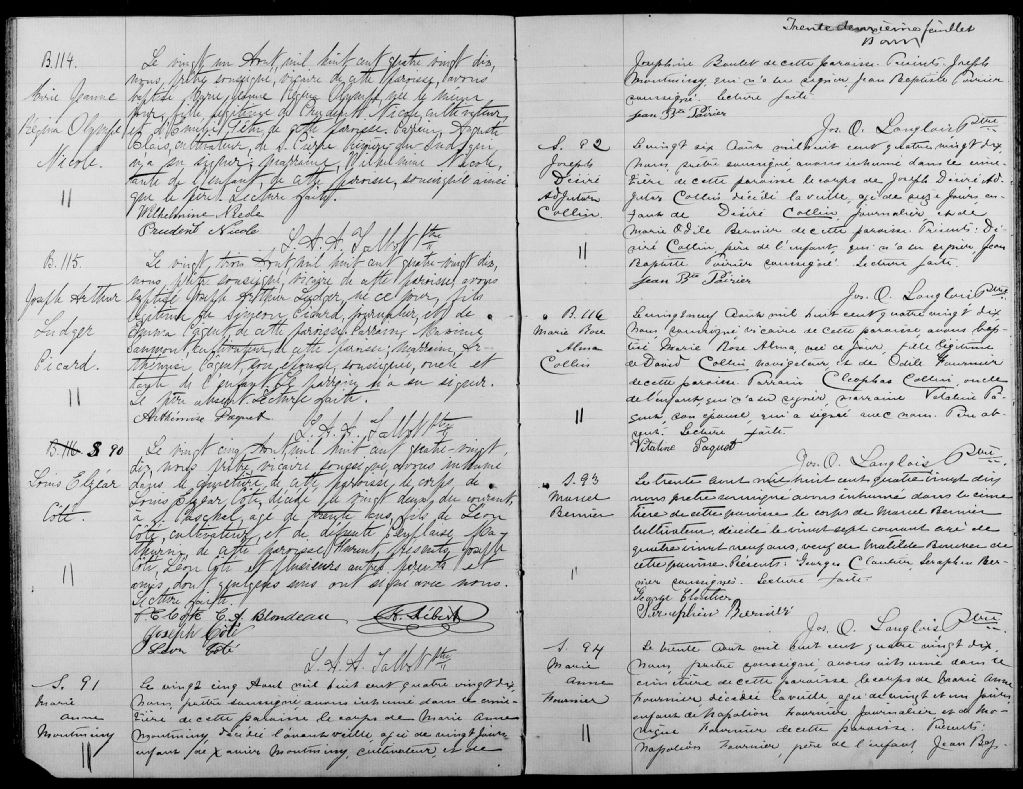 B. 114.
Marie Jeanne
Régina Olympe
Nicole.
Le vingt un Août, mil huit cent quatre vingt dix,
nous, prêtre soussigné, vicaire de cette paroisse, avons
baptisé Marie Jeanne Régina Olympe, née le même
jour, fille légitime de Prudent Nicole, cultivateur,
et d'Emilie de cette paroisse. Parrain, Auguste
Blais, cultivateur, de St Pierre Rivière du Sud, qui
n'a su signer; marraine, Wilhelmine Nicole,
tante de l'enfant, de cette paroisse, soussignée ainsi
que le père. Lecture faite.
Wilhelmine Nicole
Prudent Nicole
L. A. A. Talbot Ptre
B. 115.
Joseph Arthur
Ludger
Picard.
Le vingt trois Août, mil huit cent quatre-vingt dix,
nous, prêtre soussigné, vicaire de cette paroisse, avons
baptisé Joseph Arthur Ludger, né ce jour, fils
légitime de Siméon Picard, journalier, et de
Emma Paquet de cette paroisse. Parrain, Maxime
cultivateur de cette paroisse; marraine, Ar-
thémise Paquet, son épouse, soussignée, oncle et
tante de l'enfant. Le parrain n'a su signer.
Le père absent. Lecture faite.
Arthémise Paquet
L. A. A. Talbot Ptre
B. 116 S 90
Louis Elzéar
Côté.
Le vingt cinq Août mil huit cent quatre-vingt
dix, nous, prêtre, vicaire soussigné, avons inhumé
dans le cimetière de cette paroisse, le corps de
Louis Elzéar Côté, décédé le vingt deux du courant,
à St Paschal, âgé de trente ans, fils de Léon
Côté, cultivateur, et de défunte Penflaise Ma-
thurin, de cette paroisse. Furent présents, Joseph
Côté, Léon Côté et plusieurs autres parents et
amis dont quelques uns ont signé avec nous.
Lecture faite.
E. J. Blondeau
Joseph Côté
Léon Côté
L. A. A. Talbot Ptre
S. 91
Marie
Anne
Montminy
Le vingt cinq Août mil huit cent quatre vingt dix,
Nous, prêtre soussigné avons inhumé dans le cime-
tière de cette paroisse le corps de Marie Anne
Montminy décédée l'avant veille, âgée de vingt jours
enfant de Xavier Montminy, cultivateur, et de
Trente deuxième feuillet
Josephine Boulet de cette paroisse. Présents: Joseph
Montminy, qui n'a su signer, Jean Baptiste Poirier
soussigné. Lecture faite.
Jean Bte Poirier
Jos. O. Langlois Ptre
S. 92
Joseph
Désiré
Adjutor
Collin.
Le vingt six Août mil huit cent quatre vingt dix,
Nous, prêtre soussigné avons inhumé dans le cime-
tière de cette paroisse le corps de Joseph Désiré Ad-
jutor Collin décédé la veille, âgé de seize jours en-
fant de Désiré Collin, journalier et de
Marie Odile Bernier de cette paroisse. Présents: Dé-
siré Collin, père de l'enfant, qui n'a su signer, Jean
Baptiste Poirier soussigné. Lecture faite.
Jean Bte Poirier
Jos. O. Langlois Ptre
B. 116
Marie Rose
Alma
Collin
Le vingt neuf Août mil huit cent quatre vingt dix
Nous soussigné vicaire de cette paroisse avons bap-
tisé Marie Rose Alma, née ce jour, fille légitime
de David Collin, navigateur, et de Odile Fournier
de cette paroisse. Parrain Cléophas Collin, oncle
de l'enfant, qui n'a su signer, marraine Vitaline Pa-
quet, son épouse, qui a signé avec nous. Père ab-
sent. Lecture faite.
Vitaline Paquet
Jos. O. Langlois Ptre
S. 93
Marcel
Bernier
Le trente Août mil huit cent quatre vingt dix
nous prêtre soussigné avons inhumé dans le cime-
tière de cette paroisse le corps de Marcel Bernier
cultivateur, décédé le vingt sept courant âgé de
quatre vingt neuf ans, veuf de Matilde Boucher de
cette paroisse. Présents: Georges Cloutier, Seraphin Ber-
nier soussignés. Lecture faite.
George Cloutier
Seraphin Bernier
Jos. O. Langlois Ptre
S. 94
Marie
Anne
Fournier
Le trente Août mil huit cent quatre vingt dix,
Nous, prêtre soussigné, avons inhumé dans le
cimetière de cette paroisse le corps de Marie Anne
Fournier décédée la veille âgée de vingt et un jours,
enfant de Napoléon Fournier journalier et de
Fournier de cette paroisse. Présents:
Napoléon Fournier, père de l'enfant, Jean Bap-